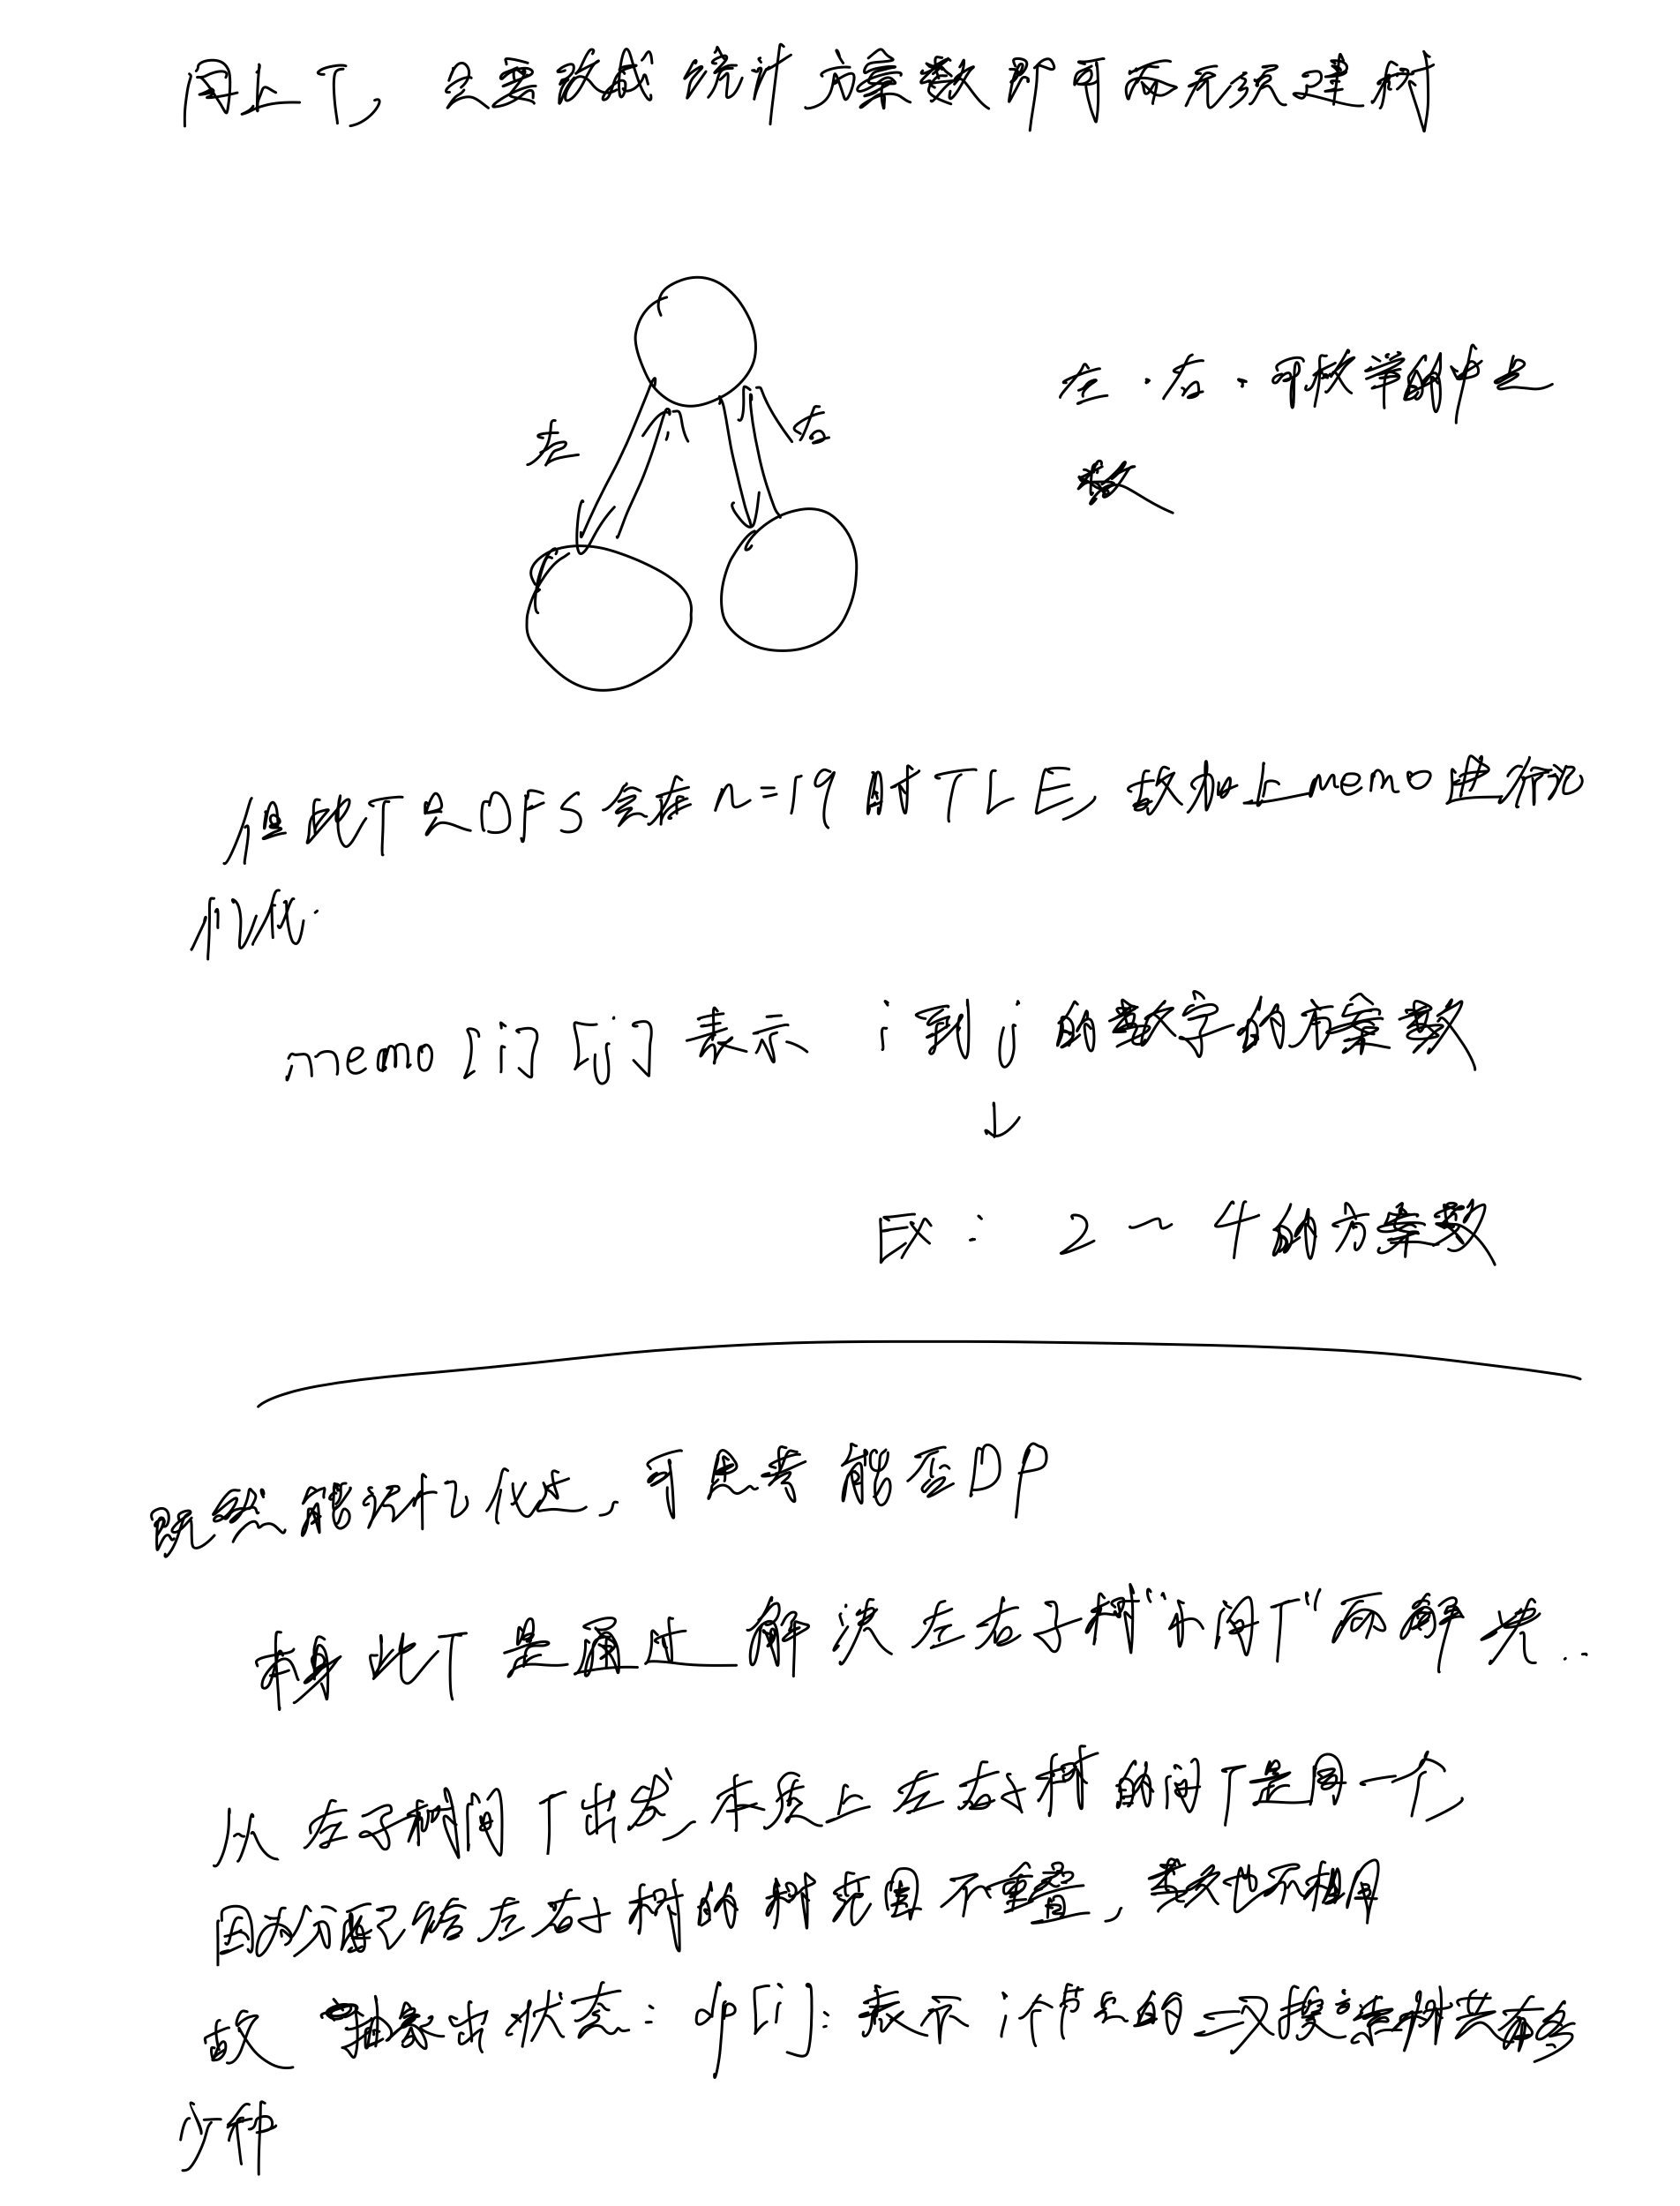 同上T,只要改成统计方案数即可而无须建树
左
右
左·右·可枚举的中点
数
但此T只DFS会在n=19时TLE,故加上memo进行记
忆化.
memo[i][j]表示 i到j的数字的方案数
↓
EX: 2~4的方案数
既然能记忆化过,可思考能否DP
本身此T是通过解决左右子树"小问T"而解决..
从左子树问T出发,本质上左右子树的问T是同一个,
因为分配给左右子树的树范围不重叠,类多也不相同
故 抽象出状态:dp[i]:表示i个节点的二叉搜索树共有多
少种